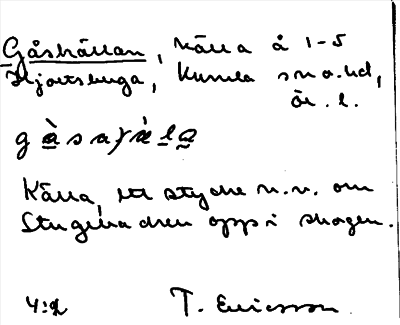 Gåskällan, källa å 1-5
Hjortsberga, Kumla sn o. hd,
Ör. l.
gàsaɟæ̀la
Källa, ett stycke n.v. om
Stugan oppi skogen.
4:2 T. Ericsson